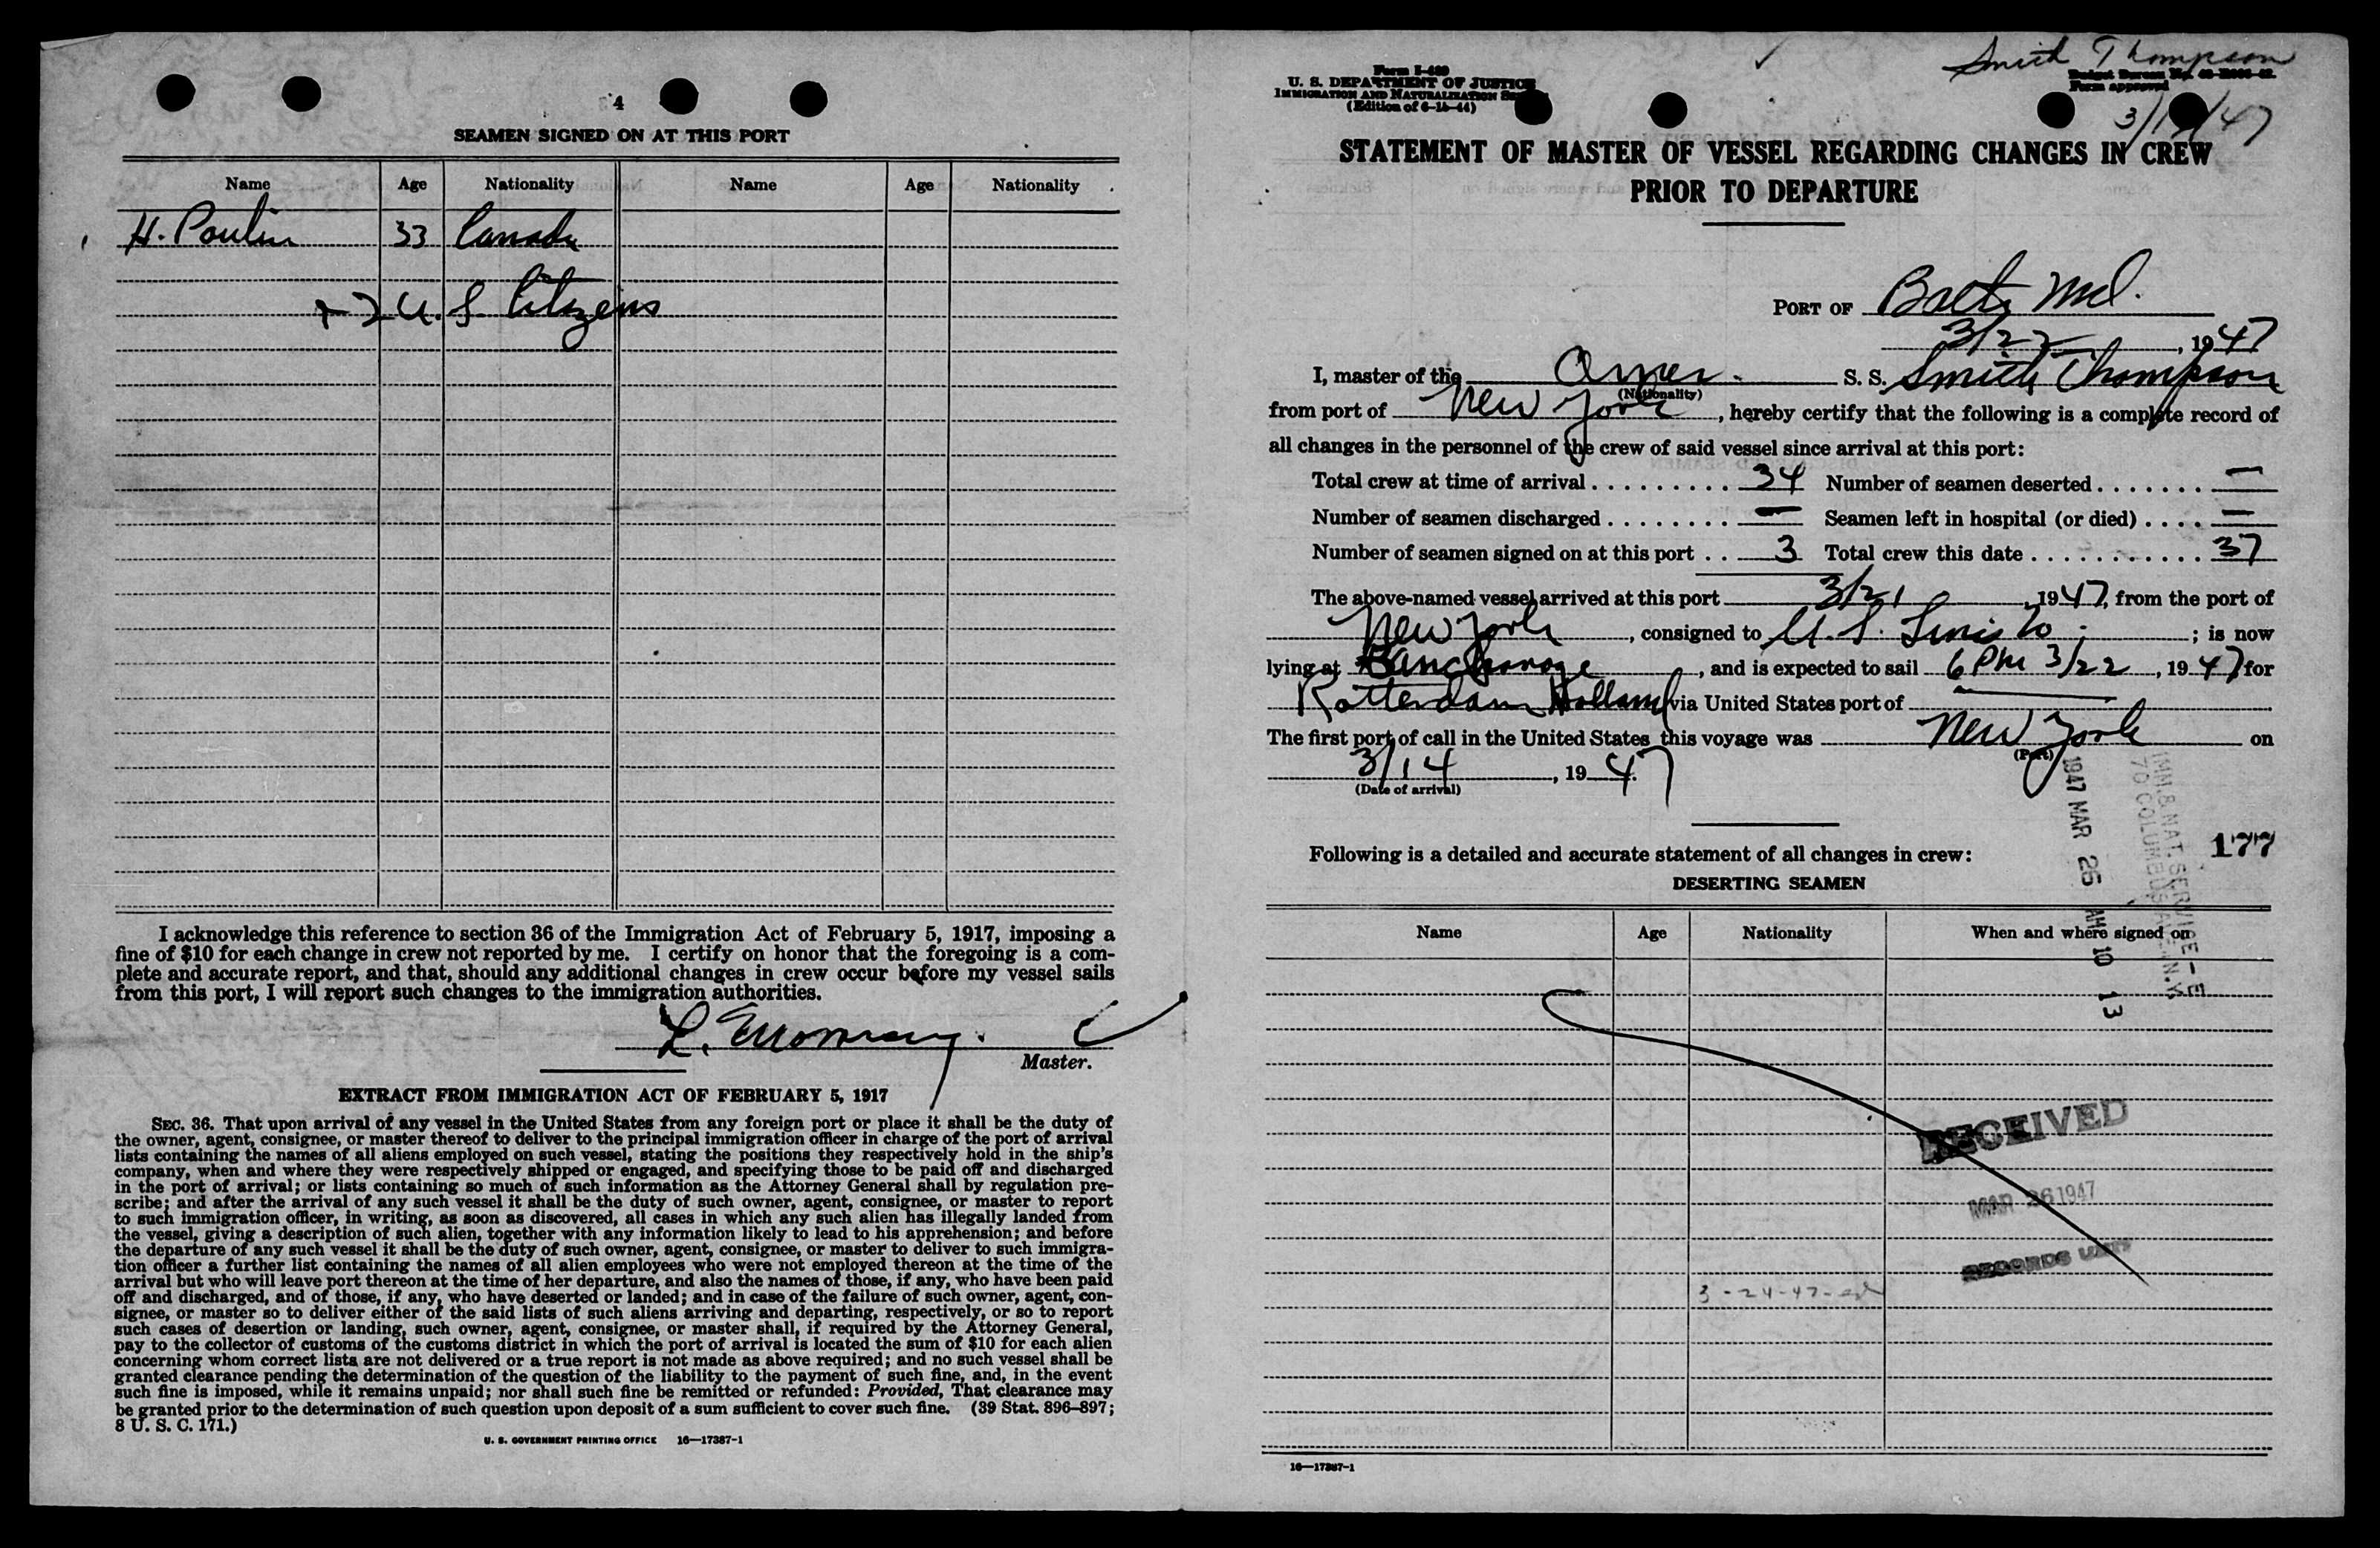 4
SEAMEN SIGNED ON AT THIS PORT
Name Age Nationality Name Age Nationality
H. Poulin 33 Canada
+ 2 U.S. Citizens
I acknowledge this reference to section 36 of the Immigration Act of February 5, 1917, imposing a
fine of $10 for each change in crew not reported by me. I certify on honor that the foregoing is a com-
plete and accurate report, and that, should any additional changes in crew occur before my vessel sails
from this port, I will report such changes to the immigration authorities.
L.
Master.
EXTRACT FROM IMMIGRATION ACT OF FEBRUARY 5, 1917
SEC. 36. That upon arrival of any vessel in the United States from any foreign port or place it shall be the duty of
the owner, agent, consignee, or master thereof to deliver to the principal immigration officer in charge of the port of arrival
lists containing the names of all aliens employed on such vessel, stating the positions they respectively hold in the ship's
company, when and where they were respectively shipped or engaged, and specifying those to be paid off and discharged
in the port of arrival; or lists containing so much of such information as the Attorney General shall by regulation pre-
scribe; and after the arrival of any such vessel it shall be the duty of such owner, agent, consignee, or master to report
to such immigration officer, in writing, as soon as discovered, all cases in which any such alien has illegally landed from
the vessel, giving a description of such alien, together with any information likely to lead to his apprehension; and before
the departure of any such vessel it shall be the duty of such owner, agent, consignee, or master to deliver to such immigra-
tion officer a further list containing the names of all alien employees who were not employed thereon at the time of the
arrival but who will leave port thereon at the time of her departure, and also the names of those, if any, who have been paid
off and discharged, and of those, if any, who have deserted or landed; and in case of the failure of such owner, agent, con-
signee, or master so to deliver either of the said lists of such aliens arriving and departing, respectively, or so to report
such cases of desertion or landing, such owner, agent, consignee, or master shall, if required by the Attorney General,
pay to the collector of customs of the customs district in which the port of arrival is located the sum of $10 for each alien
concerning whom correct lists are not delivered or a true report is not made as above required; and no such vessel shall be
granted clearance pending the determination of the question of the liability to the payment of such fine, and, in the event
such fine is imposed, while it remains unpaid; nor shall such fine be remitted or refunded: Provided, That clearance may
be granted prior to the determination of such question upon deposit of a sum sufficient to cover such fine. (39 Stat. 896-897;
8 U. S. C. 171.)
U. S. GOVERNMENT PRINTING OFFICE 16—17387-1
Smith Thompson
U. S. DEPARTMENT OF JUSTICE
IMMIGRATION AND NATURALIZATION
(Edition of 6-15-44)
Form approved
STATEMENT OF MASTER OF VESSEL REGARDING CHANGES IN CREW
PRIOR TO DEPARTURE
PORT OF Balto Md.
3/22, 1947
I, master of the Amer. S. S. Smith Thompson
(Nationality)
from port of New York, hereby certify that the following is a complete record of
all changes in the personnel of the crew of said vessel since arrival at this port:
Total crew at time of arrival 34 Number of seamen deserted —
Number of seamen discharged — Seamen left in hospital (or died) —
Number of seamen signed on at this port 3 Total crew this date 37
The above-named vessel arrived at this port 3/21, 1947, from the port of
New York, consigned to U.S. Lines Co; is now
lying at Anchorage, and is expected to sail 6 PM 3/22, 1947 for
Rotterdam Holland via United States port of
The first port of call in the United States this voyage was New York on
(Port)
3/14, 1947
(Date of arrival)
IMM. & NAT. SERVICE
1947 MAR 25 AM 10 13
177
Following is a detailed and accurate statement of all changes in crew:
DESERTING SEAMEN
Name Age Nationality When and where signed on
RECEIVED
MAR 26 1947
RECORDS UNIT
3-24-47
16—17387-1